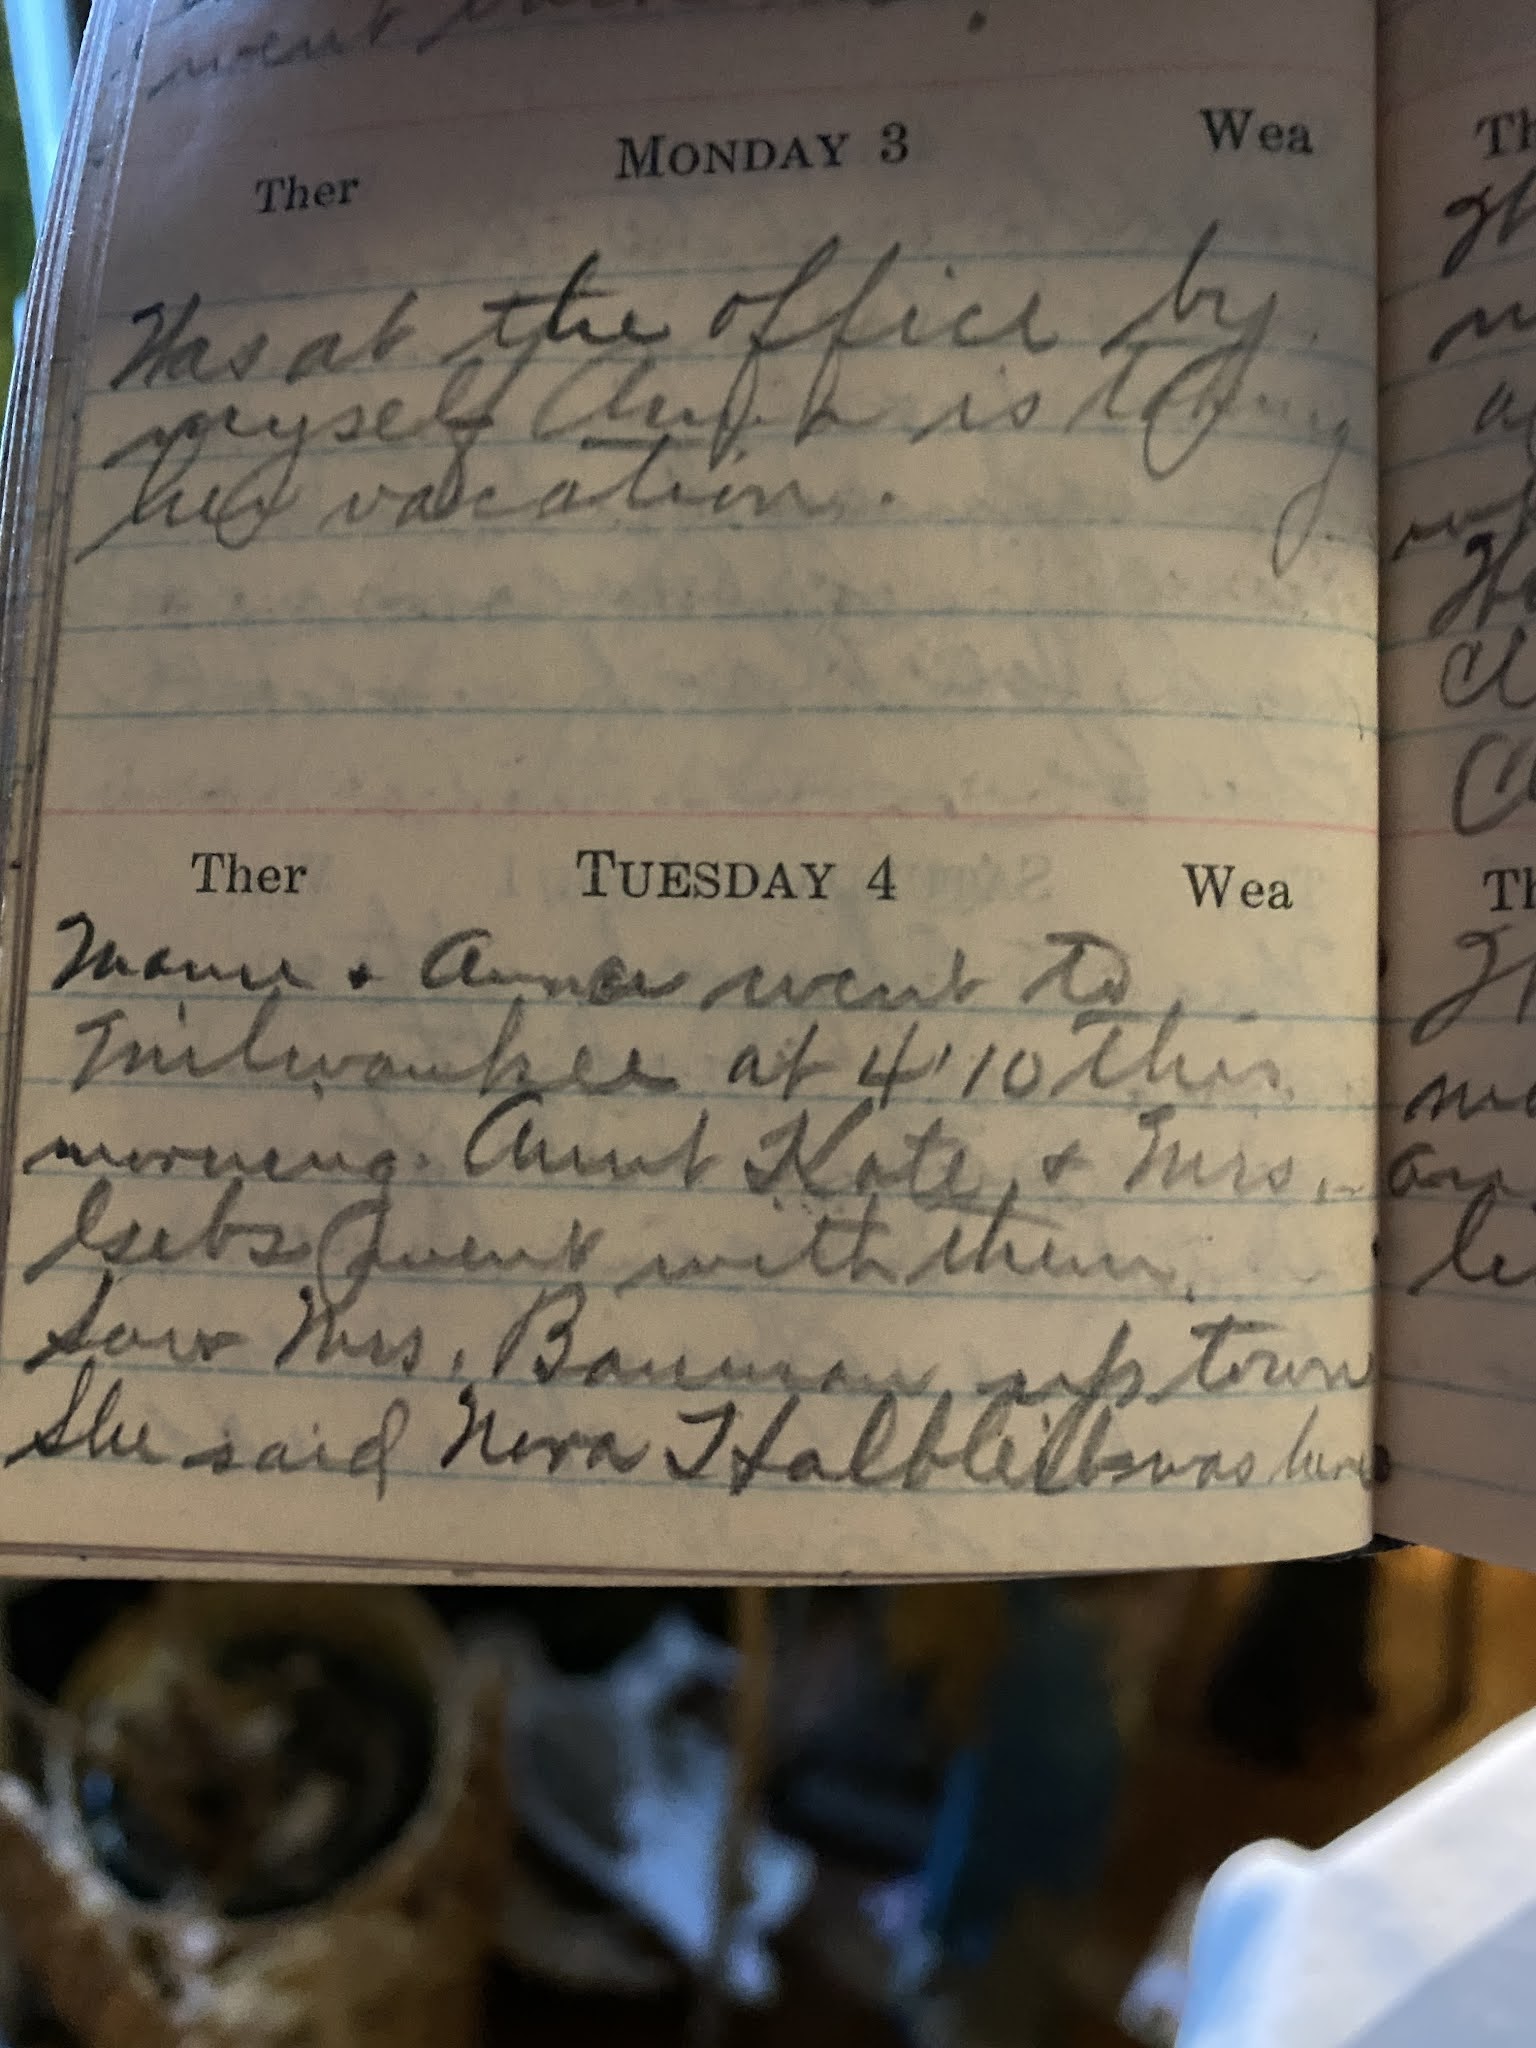 went
Monday 3
Ther Wea
Was at the office by
myself is taking
her vacation.
Ther Tuesday 4 Wea
Mame + Anna went to
Milwaukee at 4'10 this
morning. Aunt Kate + Mrs.
went with them.
Saw Mrs. Bauman up town
She said Nora Halbleib was here